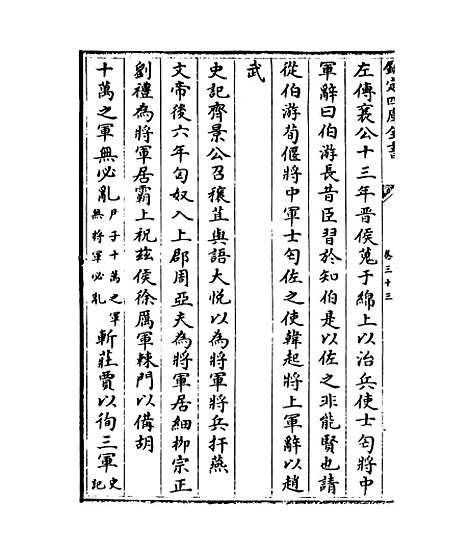 欽定四庫全書
卷三十三
左傳襄公十三年晉侯蒐于綿上以治兵使士匄將中
軍辭曰伯游長昔臣習於知伯是以佐之非能賢也請
從伯游荀偃將中軍士匄佐之使韓起將上軍辭以趙
武
史記齊景公召穰苴與語大悅以為將軍將兵扞燕
文帝後六年匈奴入上郡周亞夫為將軍居細柳宗正
劉禮為將軍居霸上祝玆侯徐厲軍棘門以備胡
十萬之軍無必亂尸子十萬之軍無將軍必亂 斬莊賈以徇三軍史記